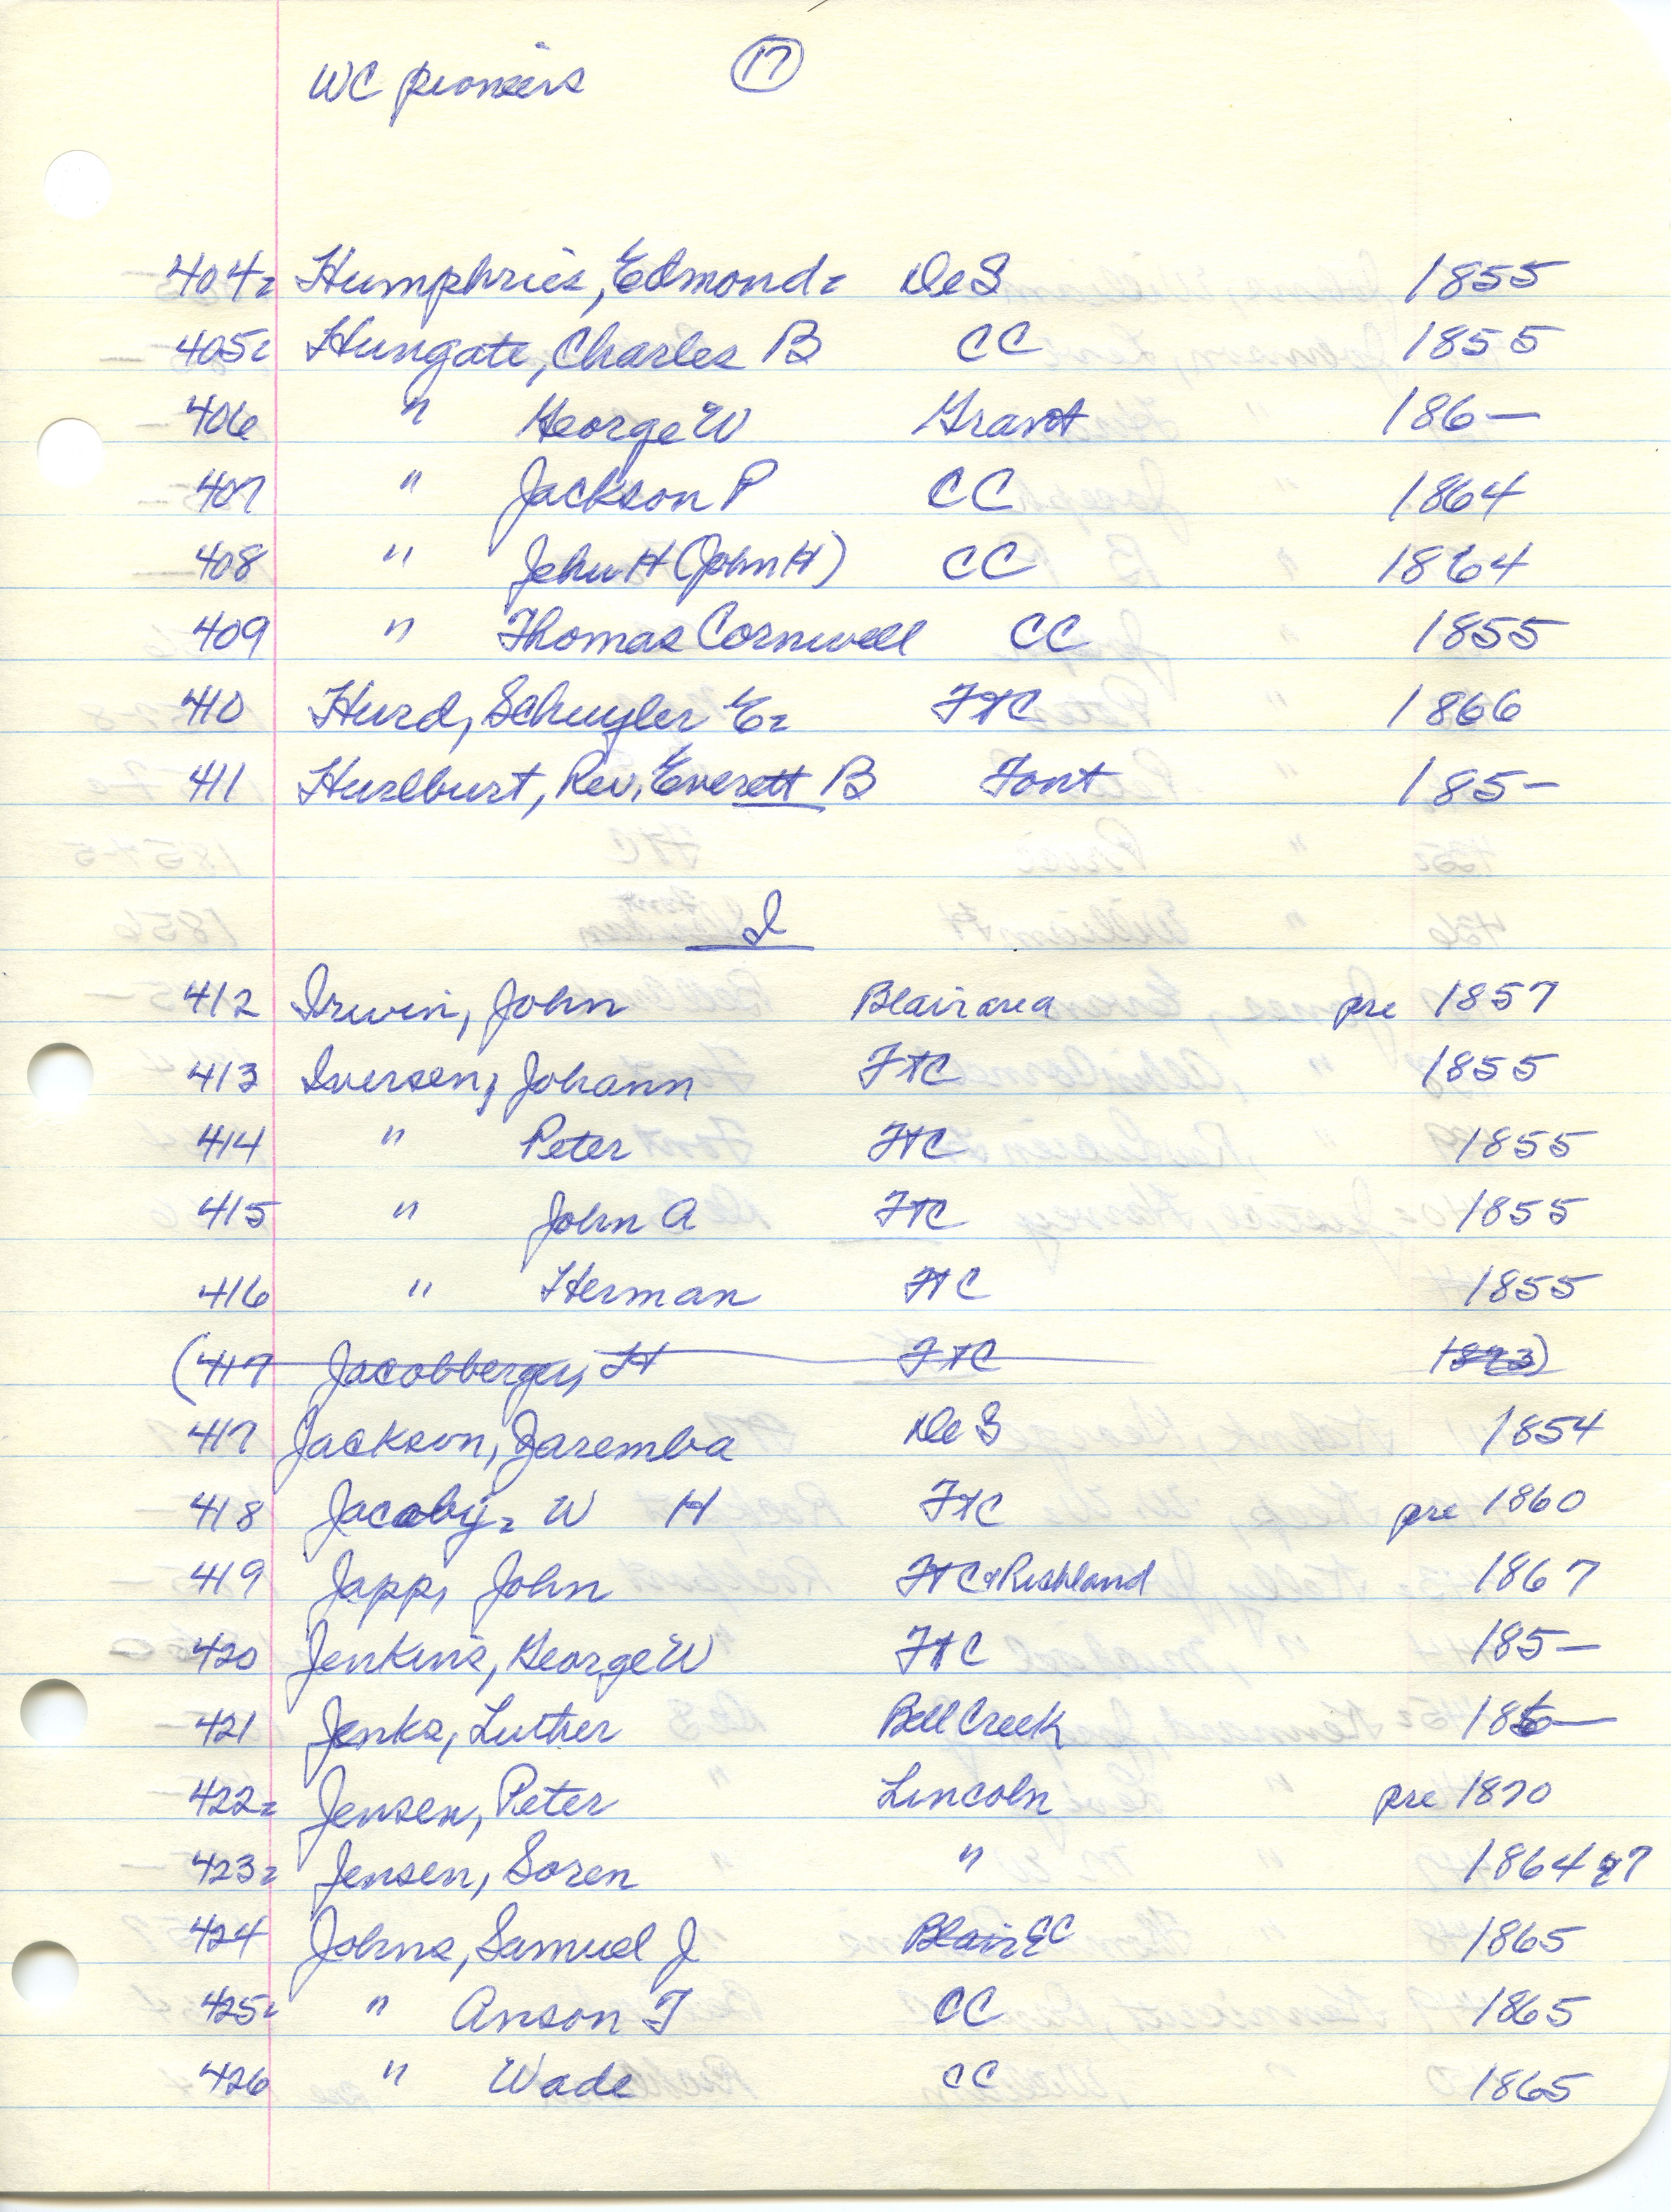 WC pioneers 17
404. Humphries, Edmond. DeS 1855
405. Hungate, Charles B CC 1855
406 " George W Grant 186—
407 " Jackson P CC 1864
408 " Jehu H (John H) CC 1864
409 " Thomas Cornwell CC 1855
410 Hurd, Schuyler E. FtC 1866
411 Hurlburt, Rev. Everett B Font 185—
I
412 Irwin, John Blair area pre 1857
413 Iversen, Johann FtC 1855
414 " Peter FtC 1855
415 " John A FtC 1855
416 " Herman FtC 1855
(417 Jacobberger, H FtC 1873)
417 Jackson, Zaremba DeS 1854
418 Jacoby, W H FtC pre 1860
419 Japp, John FtC & Richland 1867
420 Jenkins, George W FtC 185—
421 Jenks, Luther Bell Creek 186—
422. Jensen, Peter Lincoln pre 1870
423. Jensen, Soren " 1864
424 Johns, Samuel J Blair CC 1865
425. " Anson F CC 1865
426 " Wade CC 1865